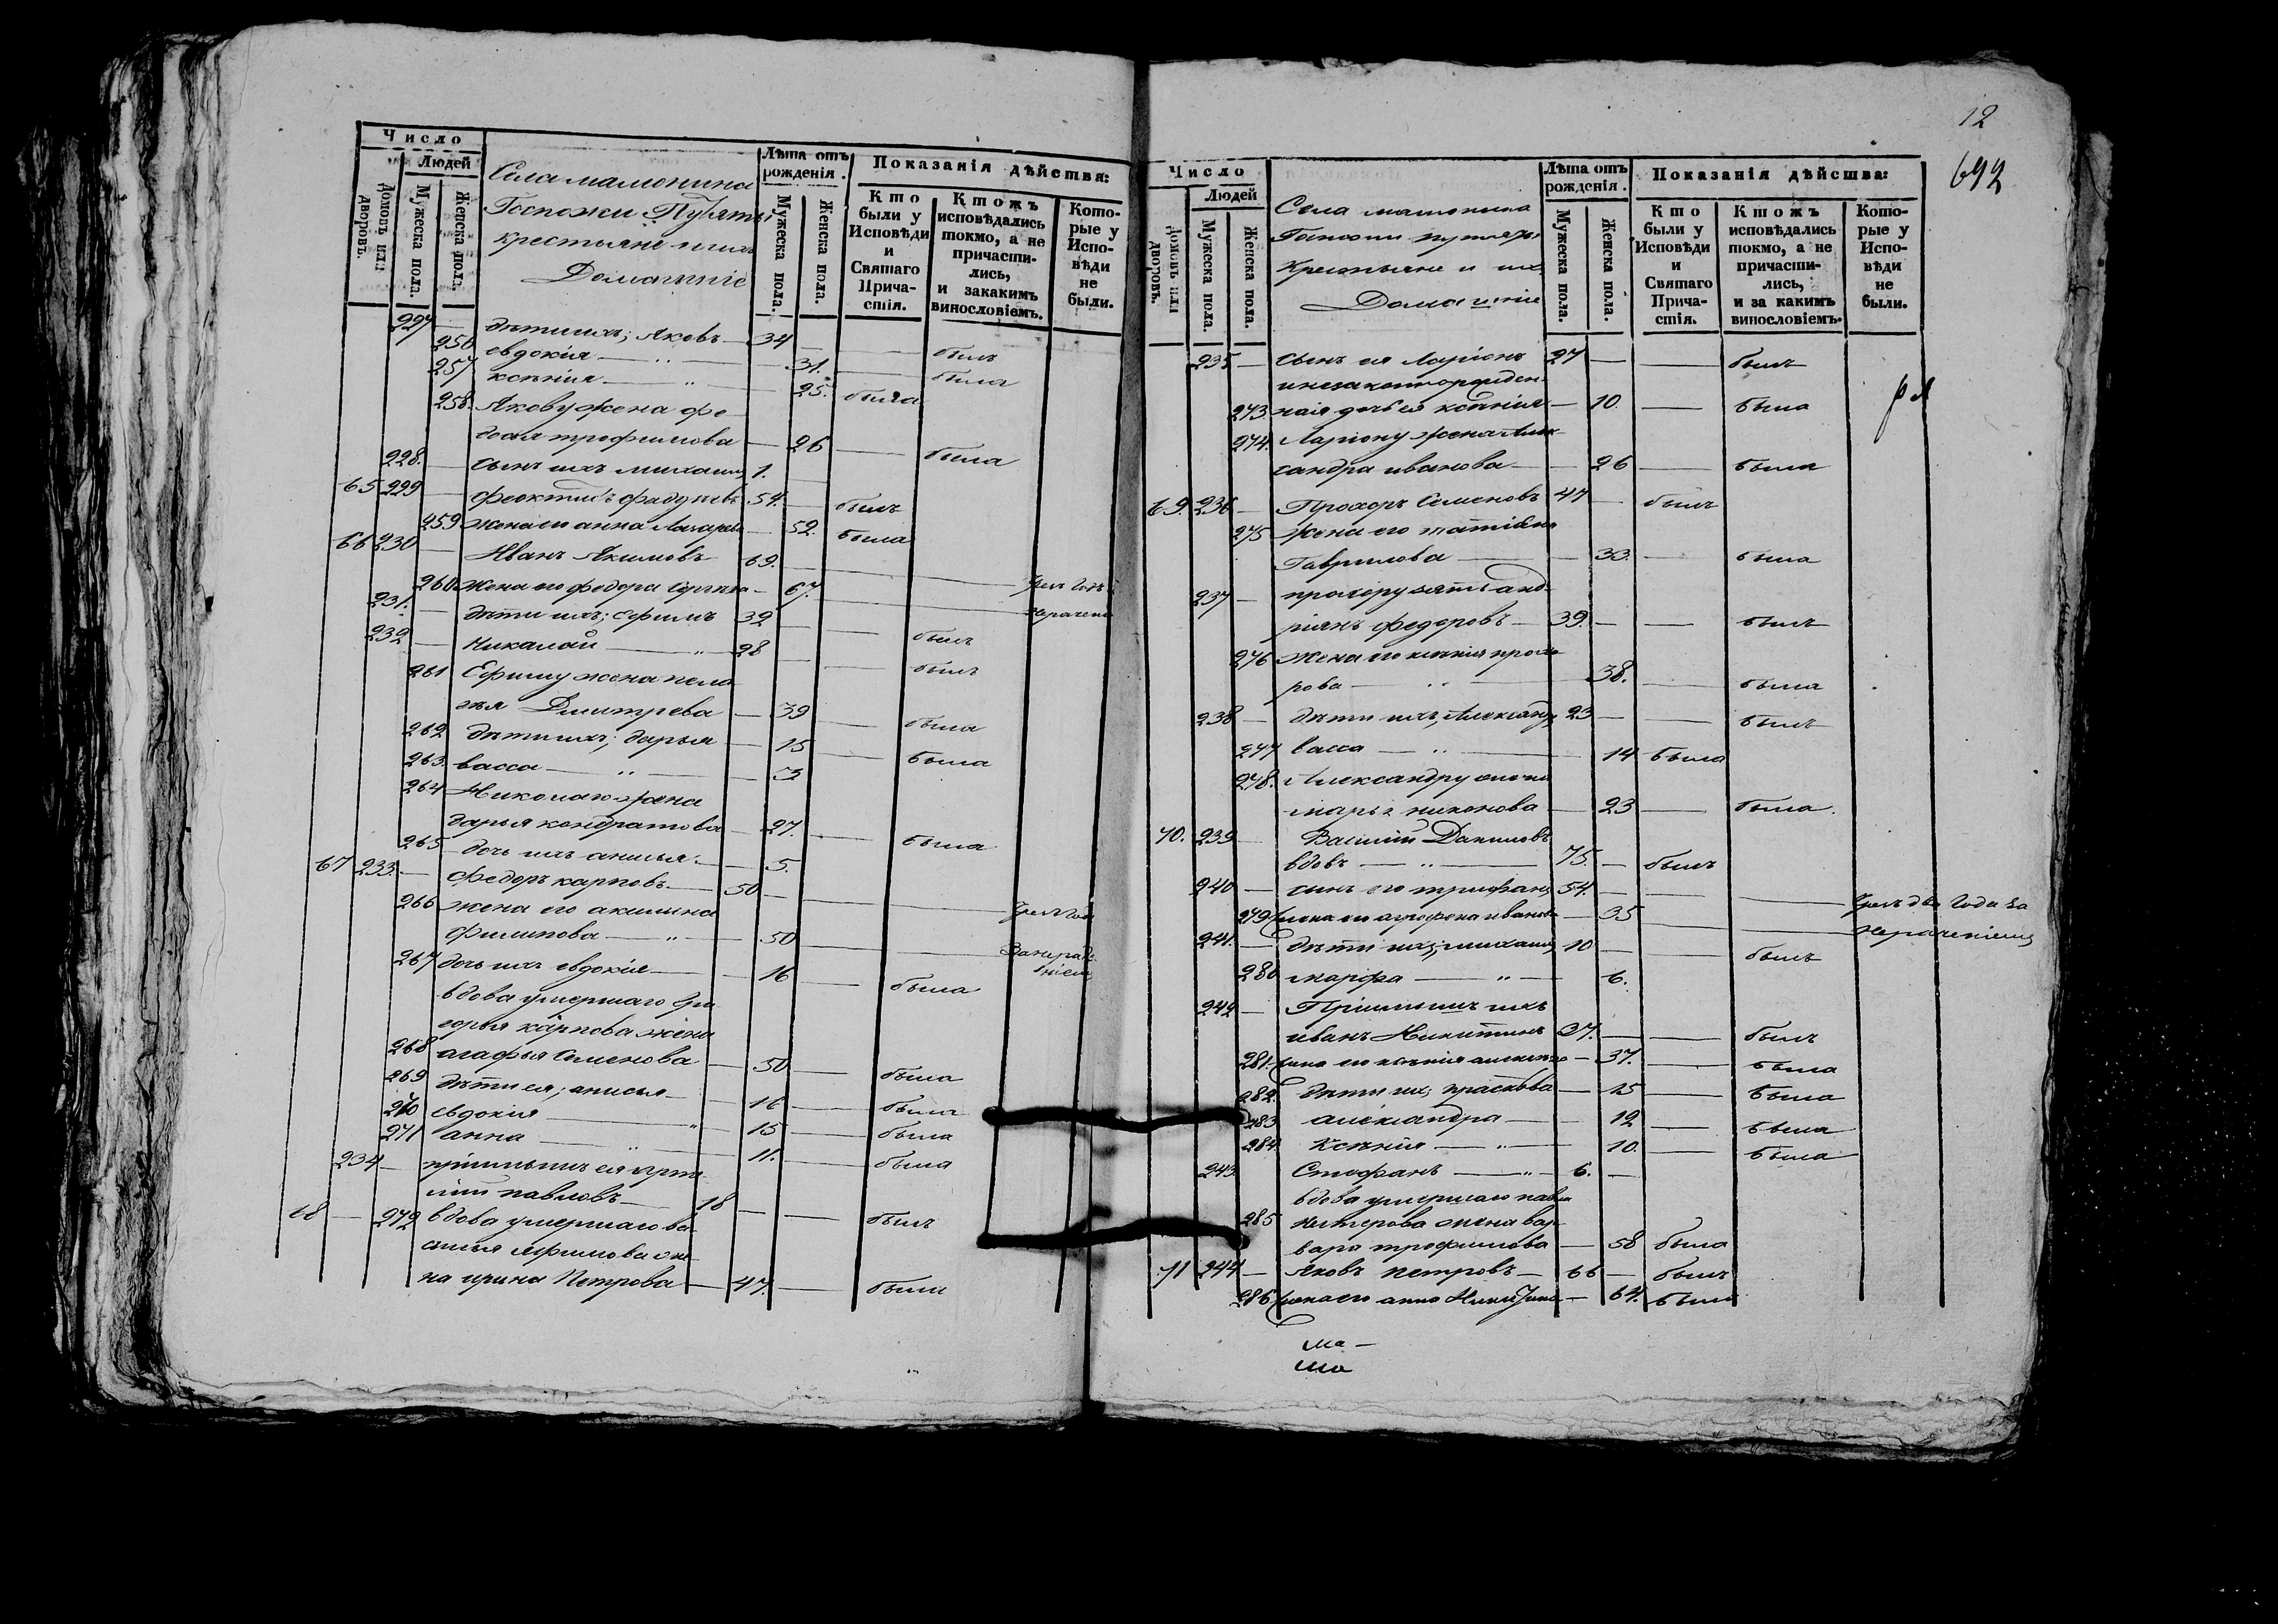 Число
Людей
Домовъ или дворовъ.
Мужеска пола.
Женска пола.
Села мамонина
Госпожи Путяты
крестьяне и ихъ
Домашніе
Лѣта отъ рожденія.
Мужеска пола.
Женска пола.
Показанія дѣйства:
Кто были у Исповѣди и Святаго Причастія.
Ктожъ исповѣдались токмо, а не причастились, и закакимъ винословіемъ.
Которые у Исповѣди не были.
227 — дѣти ихъ; Яковъ — 34 — былъ
256 евдокія — " — 31. — была
257 ксенія — " — 25. была
258. Якову жена фе
досия трофимова — 26 — была
228. — сынъ ихъ михаилъ 1.
65 229 — феоктистъ фаддеевъ 54. — былъ
259 жена его анна Лазарева — 52. была
66 230 — Иванъ Якимовъ 69.
260 жена его федора — 67.
231. — дѣти ихъ; ефимъ 39 — былъ
232 — Николай — " — 28 — былъ
261 Ефиму жена пела
гея Дмитрева — 39 — была
262 дѣти ихъ; дарья — 15 — была
263. васса — " — 3
264 Николаю жена
дарья кондратова — 27. — была
265 дочь ихъ анисья — 5.
67 233 — федоръ карповъ — 50 —
266 жена его акилина
филипова — " — 50 — Занераде
ніемъ
267 дочь ихъ евдокія — 16 — была
вдова умершаго гри
горья карпова жена
268 агафья семенова — 50 — была
269 дѣти ея; анисья — 16 — была
270 евдокія — " — 15 — была
271 анна — " — 11. — была
234 — пріимышъ ея
павловъ — 18 — былъ
68 — 272 вдова умершаго ва
силья ефимова же
на ирина Петрова — 47. — была
12
692
Число
Людей
Домовъ или дворовъ.
Мужеска пола.
Женска пола.
Села мамонина
Госпожи путяты
Крестьяне и ихъ
Домашніе
Лѣта отъ рожденія.
Мужеска пола.
Женска пола.
Показанія дѣйства:
Кто были у Исповѣди и Святаго Причастія.
Ктожъ исповѣдались токмо, а не причастились, и за какимъ винословіемъ.
Которые у Исповѣди не были.
235 — сынъ ея Ларіонъ 27 — былъ
и незаконнорожден
273. ная дочь ея ксенія — 10. — была
274. Ларіону жена Алек
сандра иванова — 26 — была
69. 236 — Прохоръ Семеновъ 47 — былъ
275 жена его татіана
Гаврилова — 33. — была
237 — прохору зять анд
риянъ федоровъ — 39. — былъ
276 жена его ксенія прохо
рова — " — 38. — была
238 — дѣти ихъ; Александръ 23 — былъ
277 васса — " — 14 была
278. Александру жена
марья никонова — 23 — была.
70. 239 — Василій Даниловъ
вдовъ — " — 75. — былъ
240 — сынъ его трифонъ 54. — Чрезъ два года за
279 жена его агрофена иванова — 35 — нераченіемъ
241. — дѣти ихъ; михаилъ 10 — былъ
280 марфа — " — 6.
242 — Пріимышъ ихъ
иванъ Никитинъ 37. — былъ
281. жена его ксенія — 37. — была
282. дѣти ихъ; прасковья — 15 — была
283 александра — 12 — была
284. Ксенія — " — 10. — была
243 Стефанъ — " — 6. —
вдова умершаго павла
285 нестерова жена вар
вара трофимова — 58 была
71 244 — Яковъ петровъ — 66 — былъ
286 жена его анна Никитина — 64. была
ма —
ма